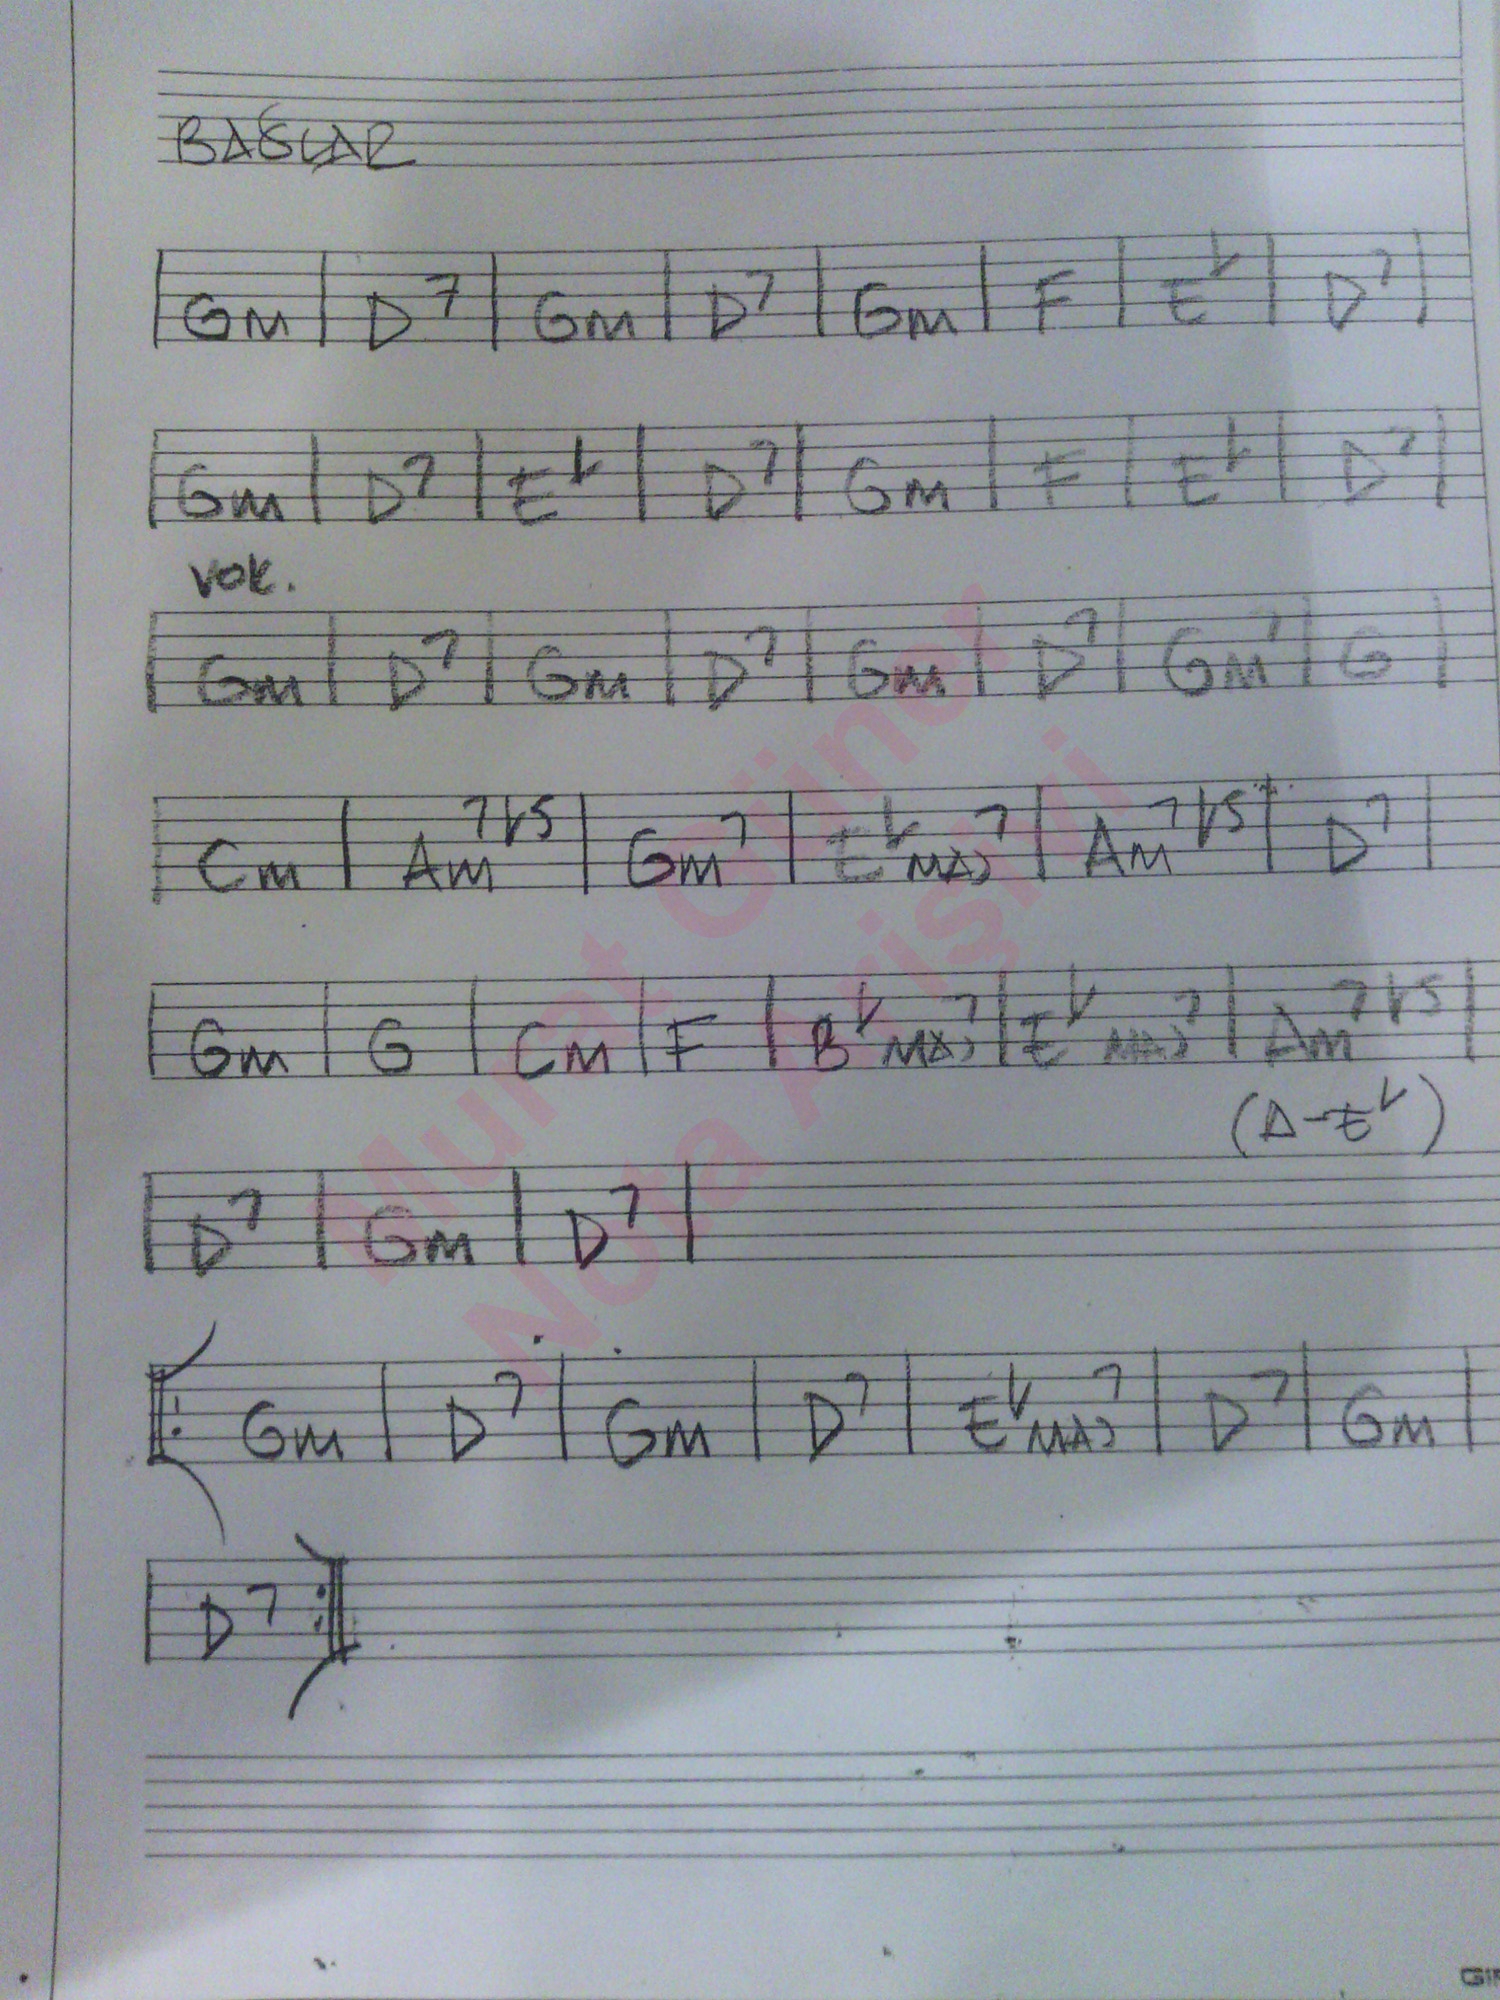 BAĞLAR
| Gm | D7 | Gm | D7 | Gm | F | E♭ | D7 |
| Gm | D7 | E♭ | D7 | Gm | F | E♭ | D7 |
vok.
| Gm | D7 | Gm | D7 | Gm | D7 | Gm7 | G |
| Cm | Am7♭5 | Gm7 | E♭MAJ7 | Am7♭5 | D7 |
| Gm | G | Cm | F | B♭MAJ7 | E♭MAJ7 | Am7♭5 |
(D-E♭)
| D7 | Gm | D7 |
|: Gm | D7 | Gm | D7 | E♭MAJ7 | D7 | Gm |
| D7 :|
Murat Güner
Nota Arşivi